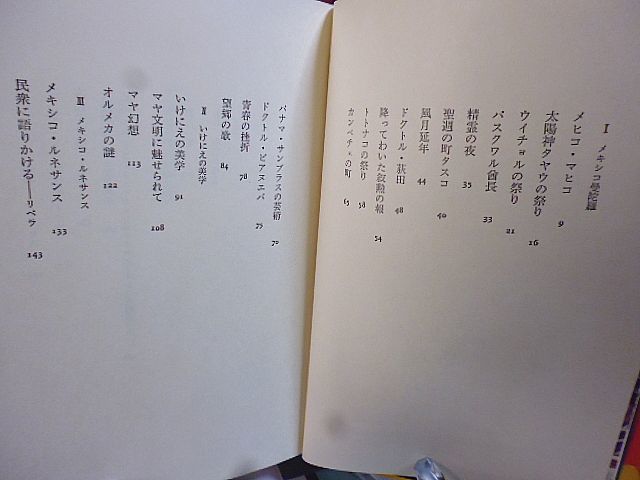 I メキシコ曼陀羅
メヒコ・マヒコ 9
太陽神タヤウの祭り 16
ウイチョルの祭り 21
パスクワル酋長 33
精霊の夜 35
聖週の町タスコ 40
風月延年 44
ドクトル・荻田 48
降ってわいた叙勲の報 54
トトナコの祭り 58
カンペチェの町 65
パナマ・サンブラスの芸術 70
ドクトル・ビアヌエバ 75
青春の挫折 78
望郷の歌 84
II いけにえの美学
いけにえの美学 91
マヤ文明に魅せられて 108
マヤ幻想 113
オルメカの謎 122
III メキシコ・ルネサンス
メキシコ・ルネサンス 133
民衆に語りかける――リベラ 143